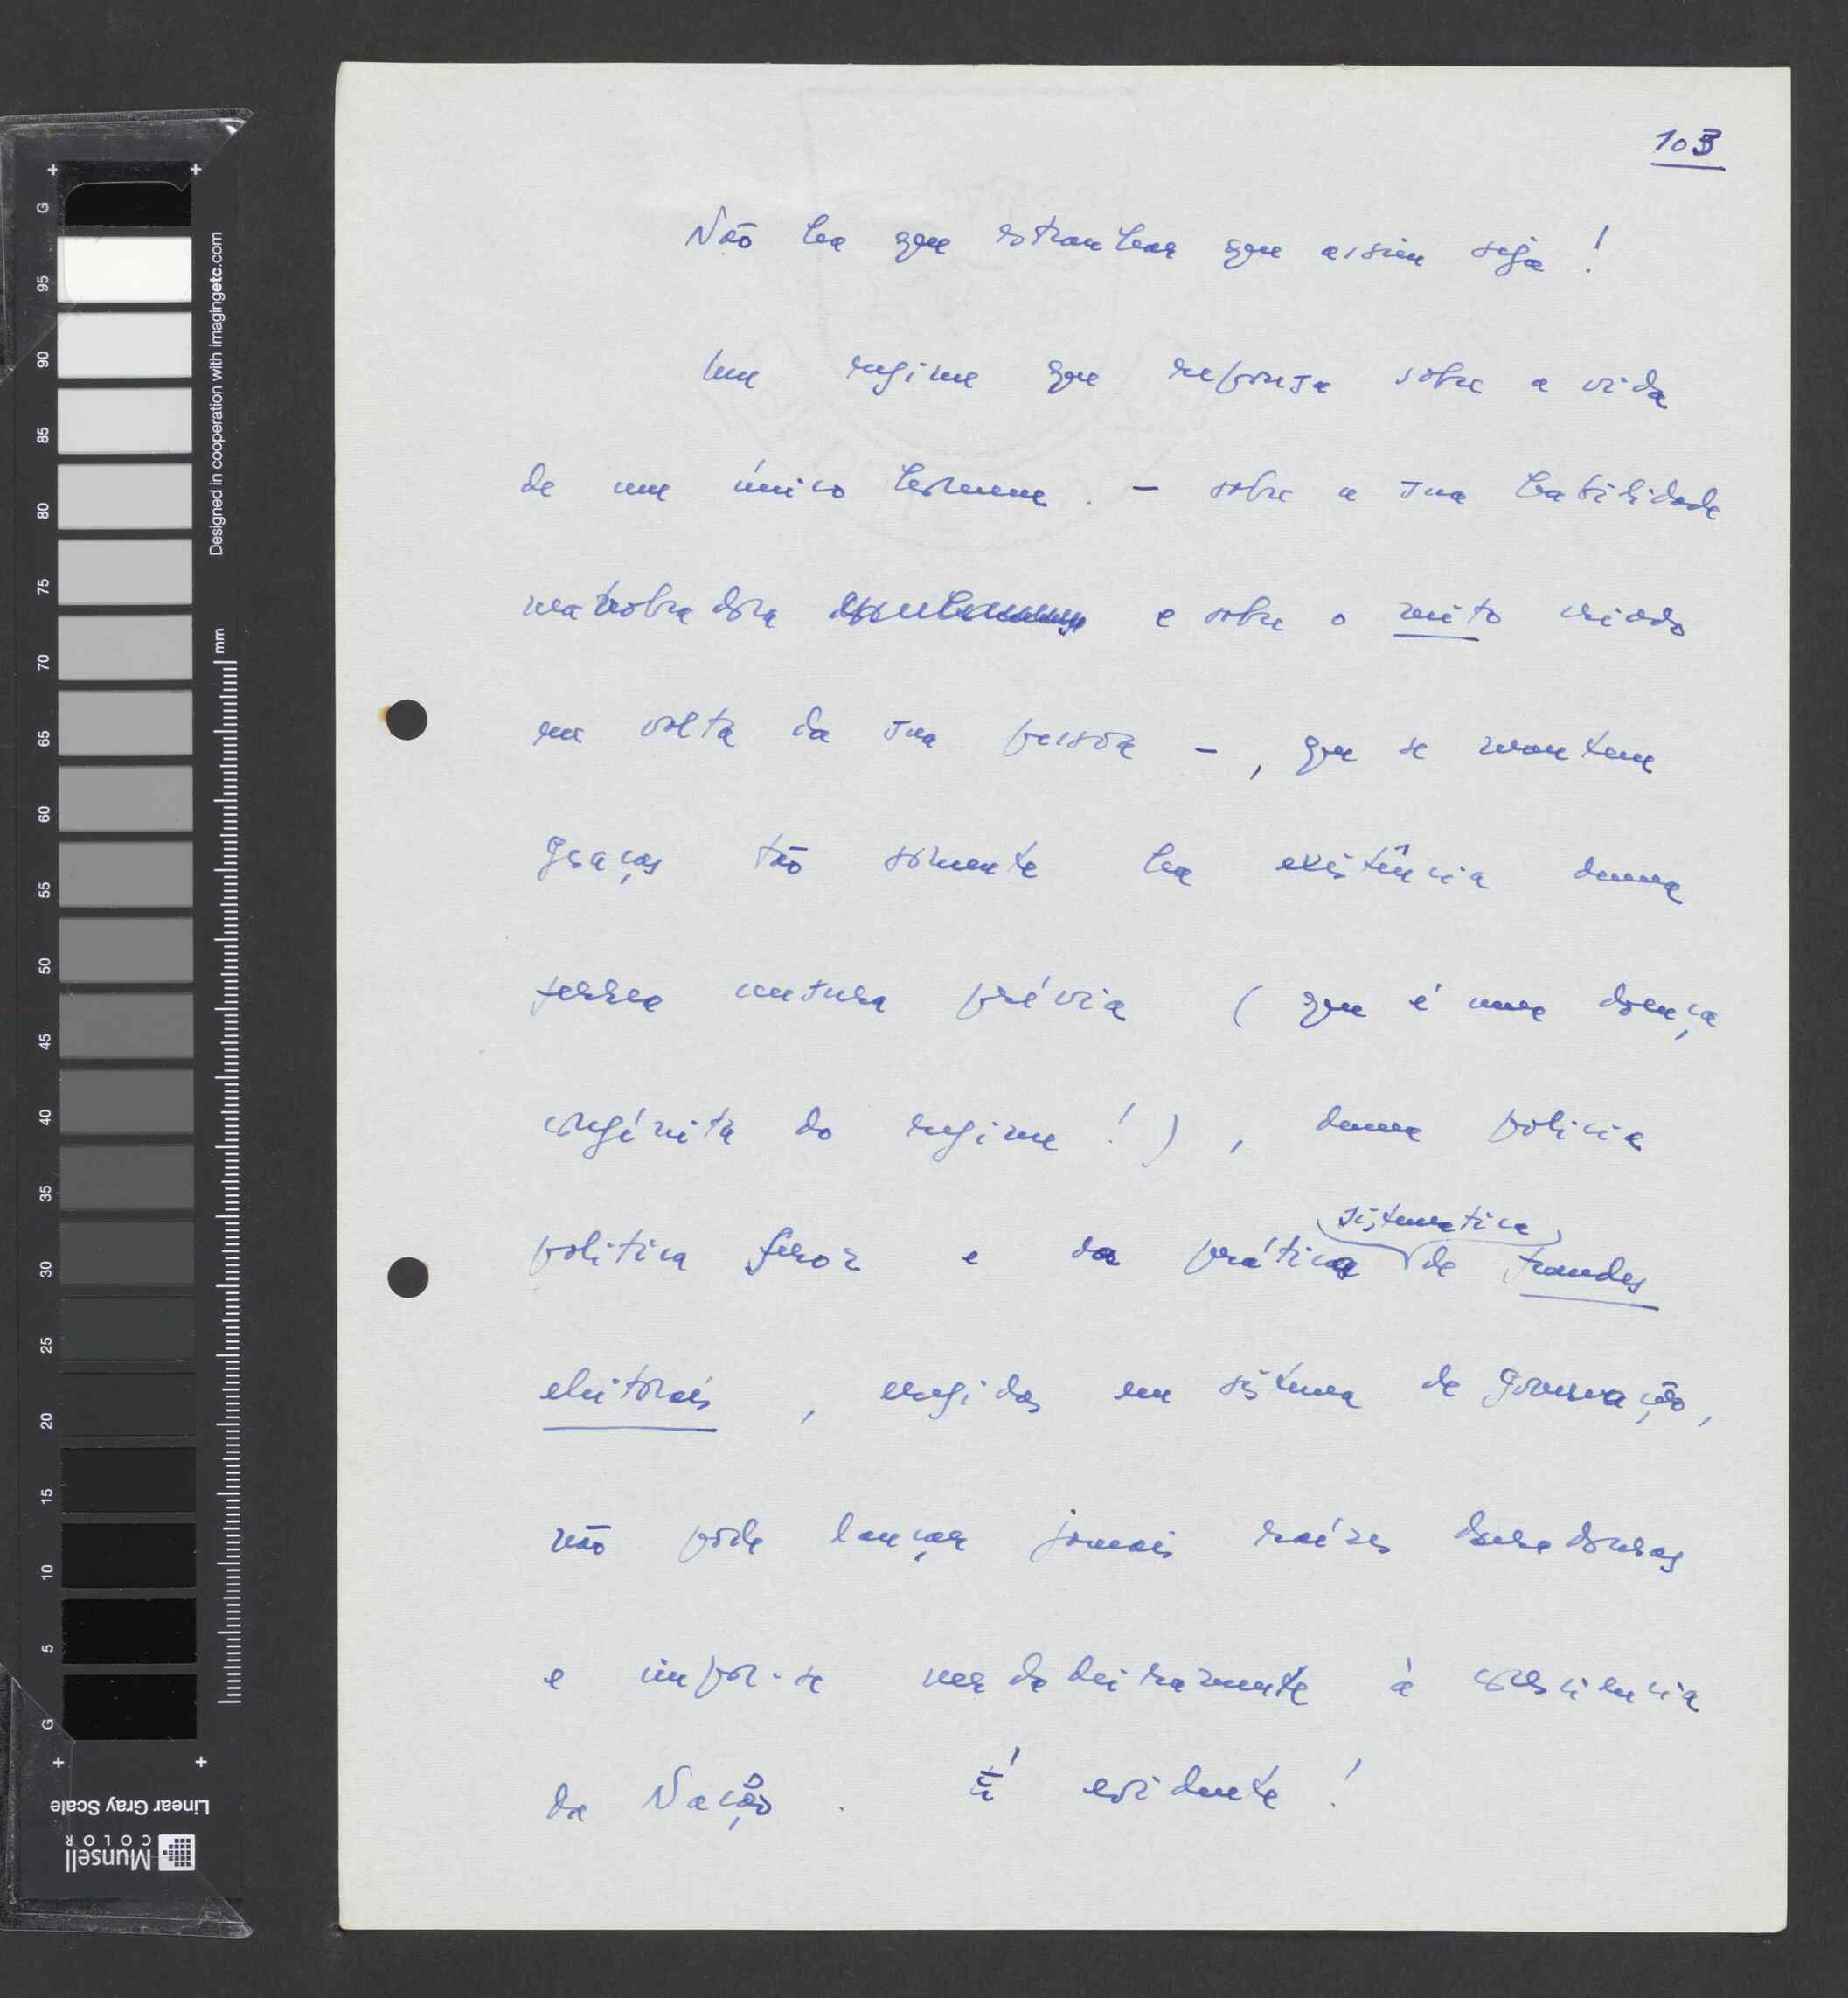 103
Não ha que estranhar que assim seja !
Um regime que repousa sobre a vida
de um único homem . - sobre a sua habilidade
manobradora e sobre o mito criado
em volta da sua pessoa - , que se mantem
graças tão sómente ha existência duma
ferrea censura prévia ( que é uma doença
congénita do regime ! ) , duma policia
sistematica
politica feroz e da prática de fraudes
eleitorais , erigidas em sistema de governação ,
não pode lançar jamais raízes duradouras
e impor-se verdadeiramente à consciencia
da Nação . É evidente !
G 95 90 85 80 75 70 65 60 55 50 45 40 35 30 25 20 15 10 5 G
Designed in cooperation with imagingetc.com
mm
Linear Gray Scale
Munsell
COLOR